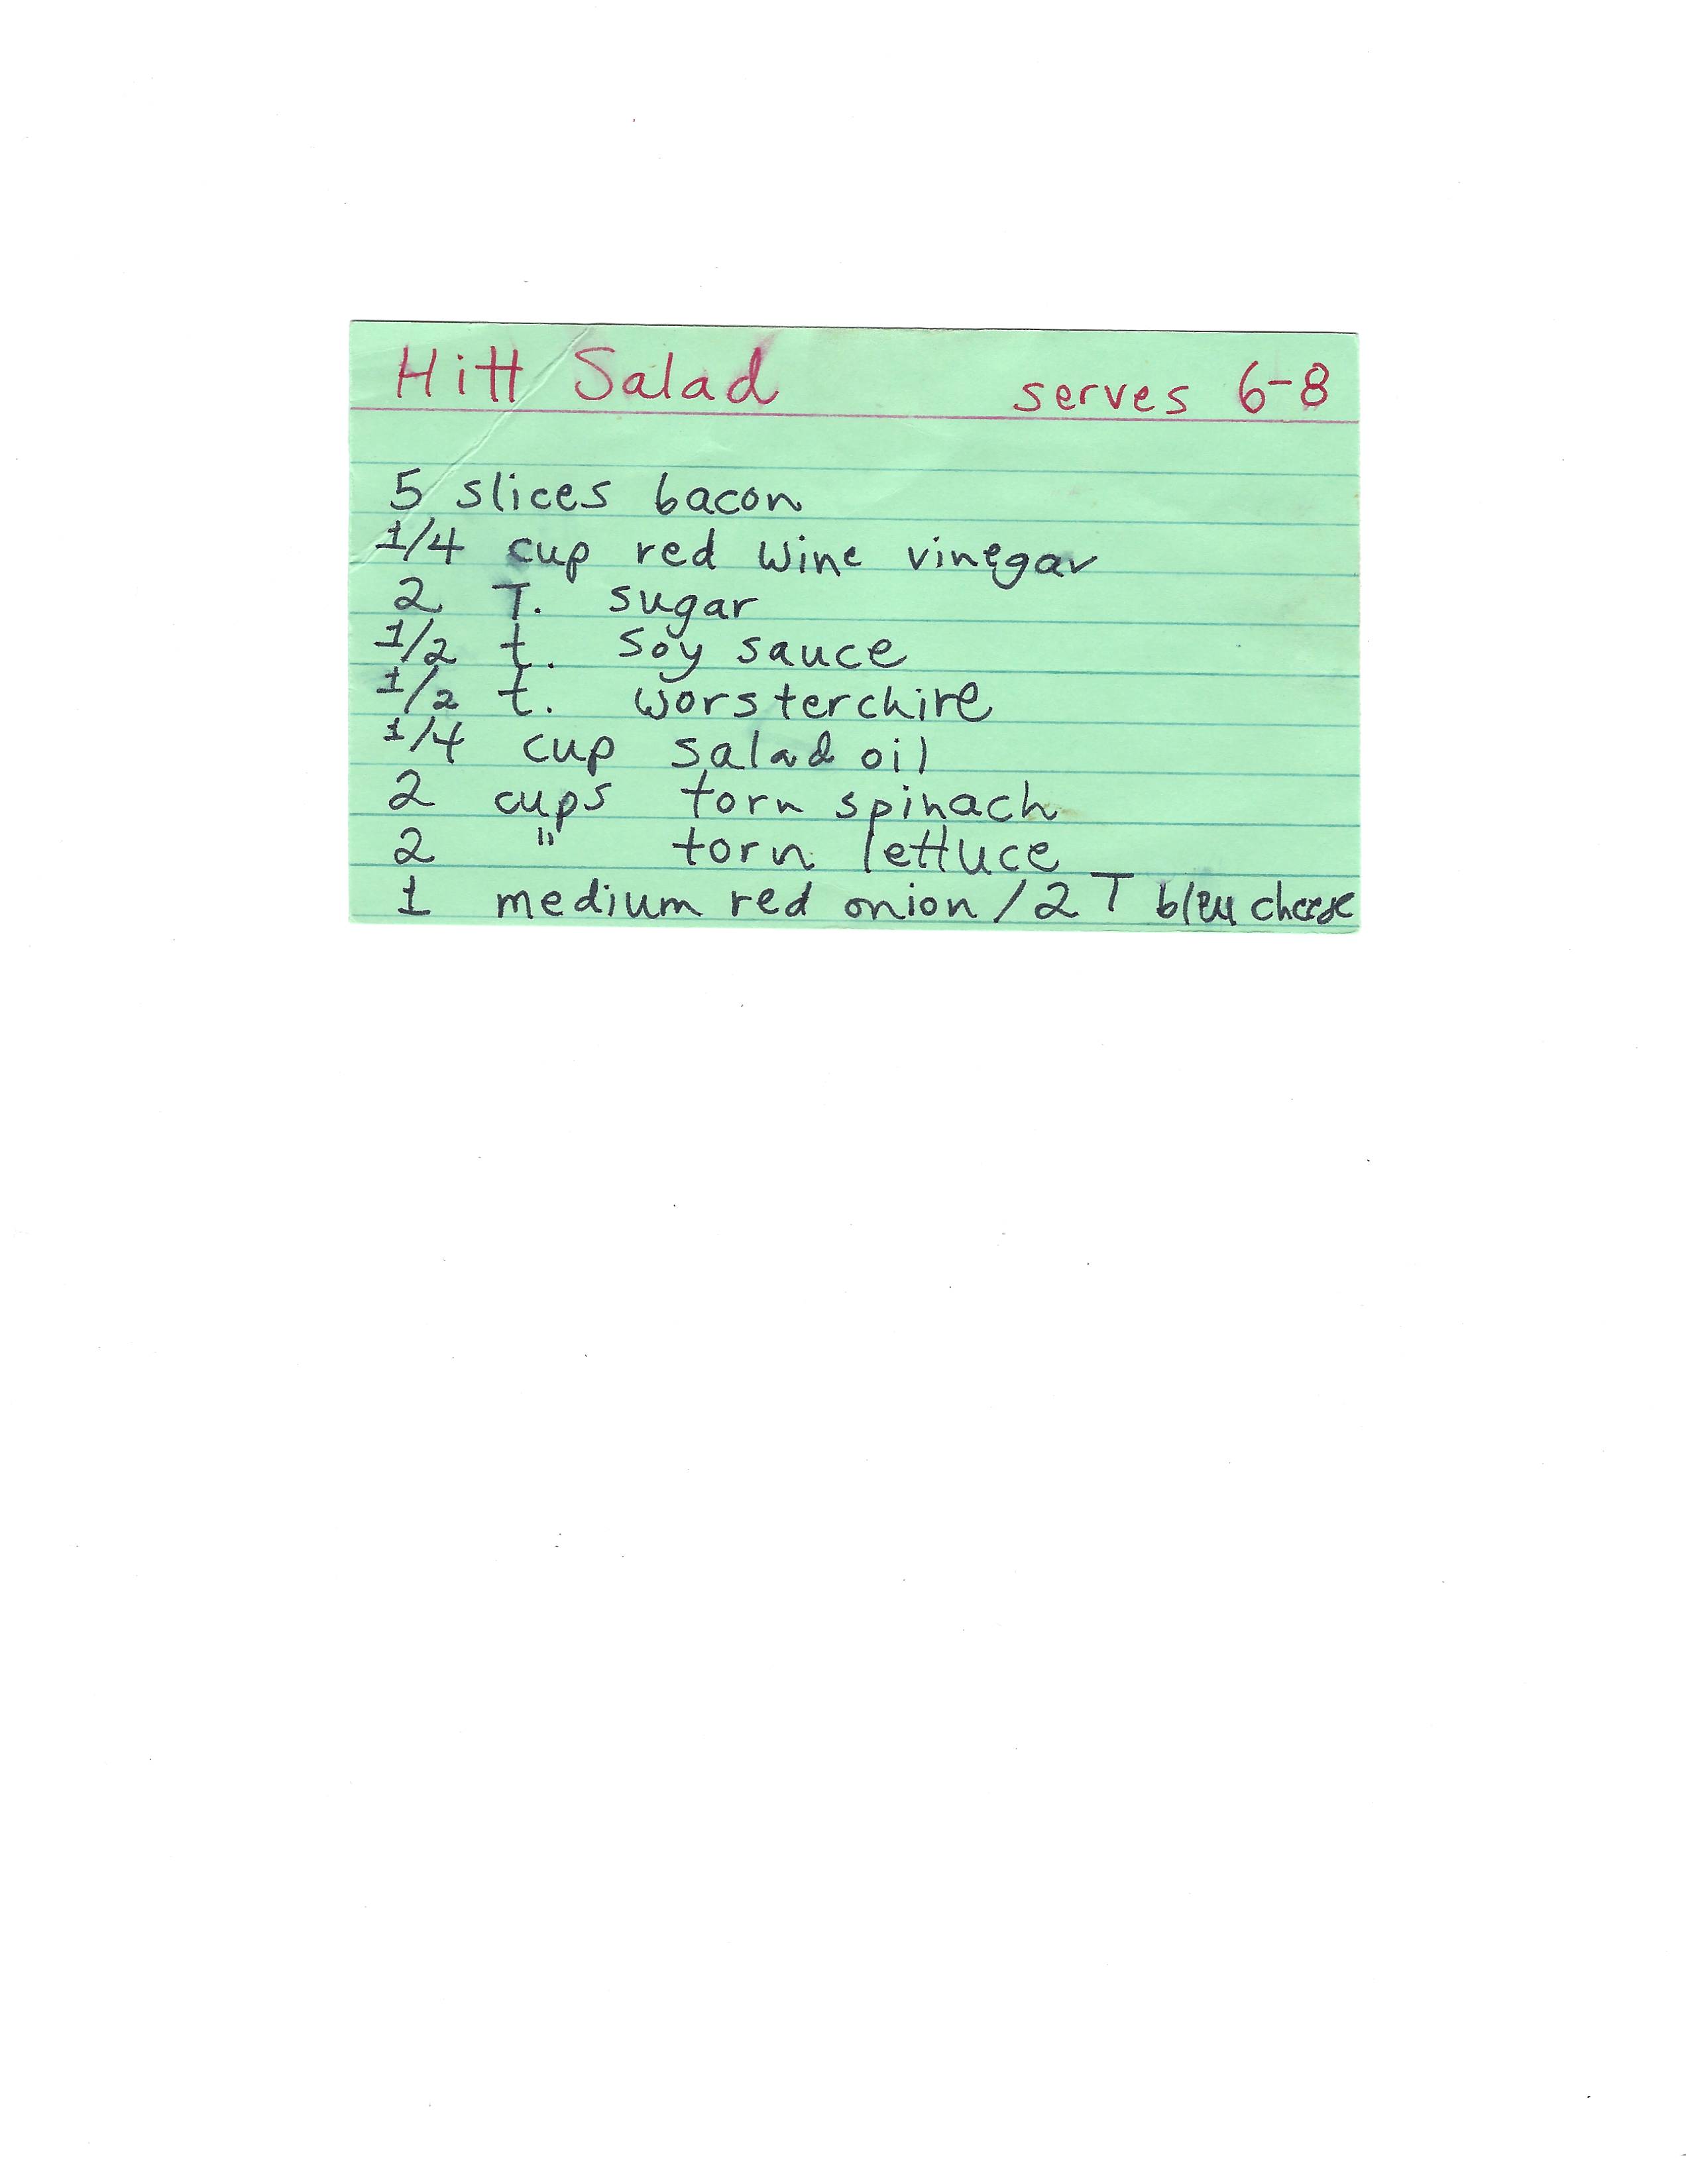 Hitt Salad serves 6-8
5 slices bacon
1/4 cup red wine vinegar
2 T. sugar
1/2 t. soy sauce
1/2 t. worsterchire
1/4 cup salad oil
2 cups torn spinach
2 " torn lettuce
1 medium red onion / 2 T bleu cheese